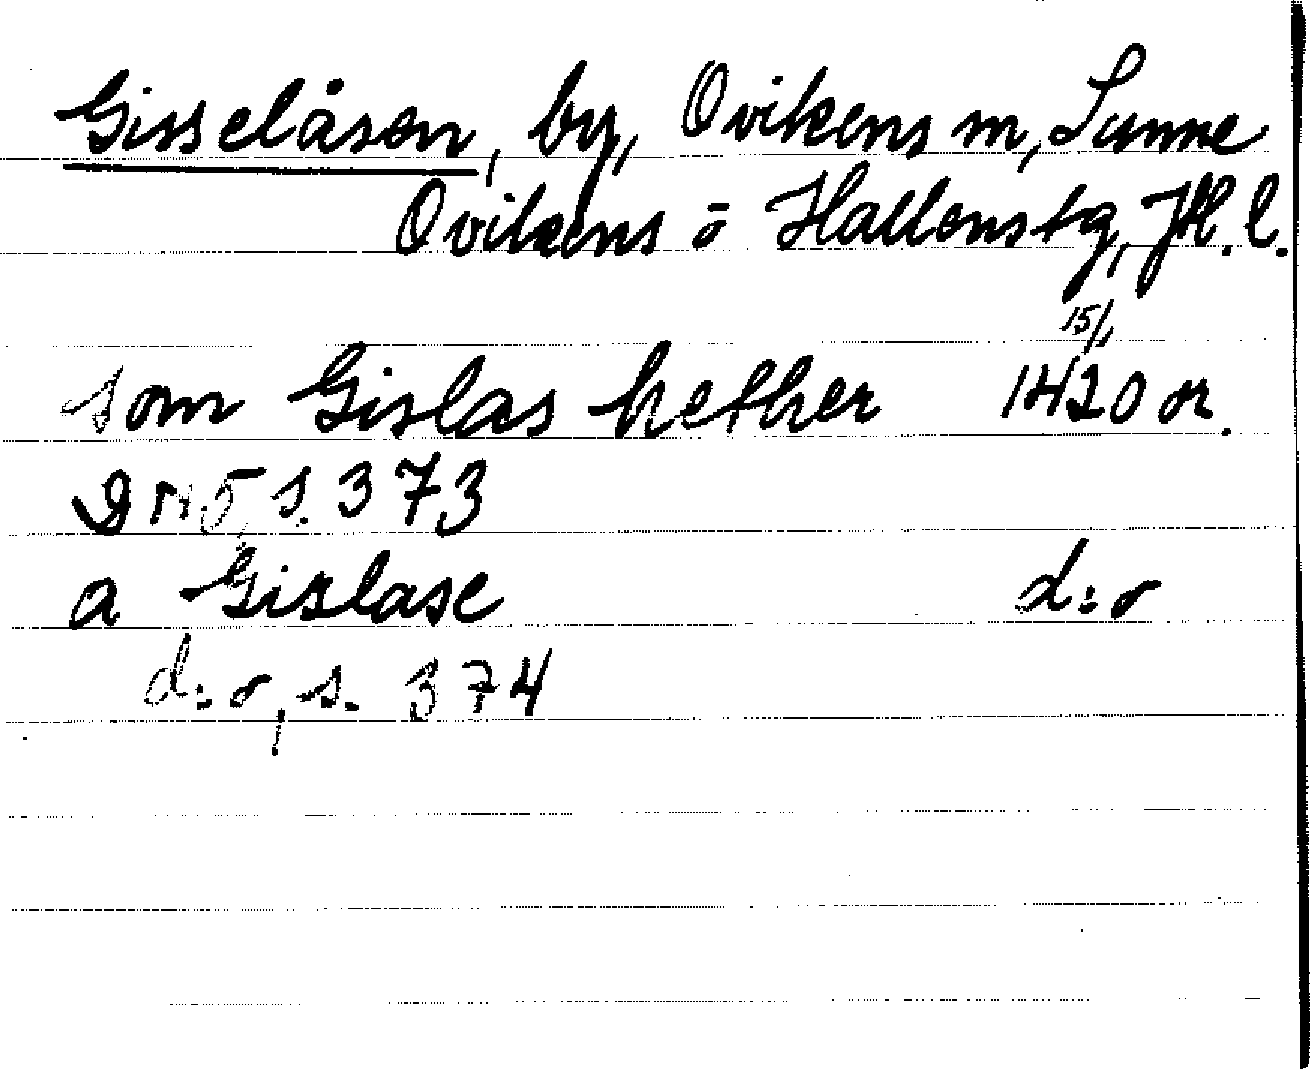 Gisselåsen, by, Ovikens sn, Sunne
Ovikens o Hallens tg, Jtl. l.
15/1
som Gislas hether 1420 or.
DN 5, s. 373
a Gislase d:o
d:o, s. 374